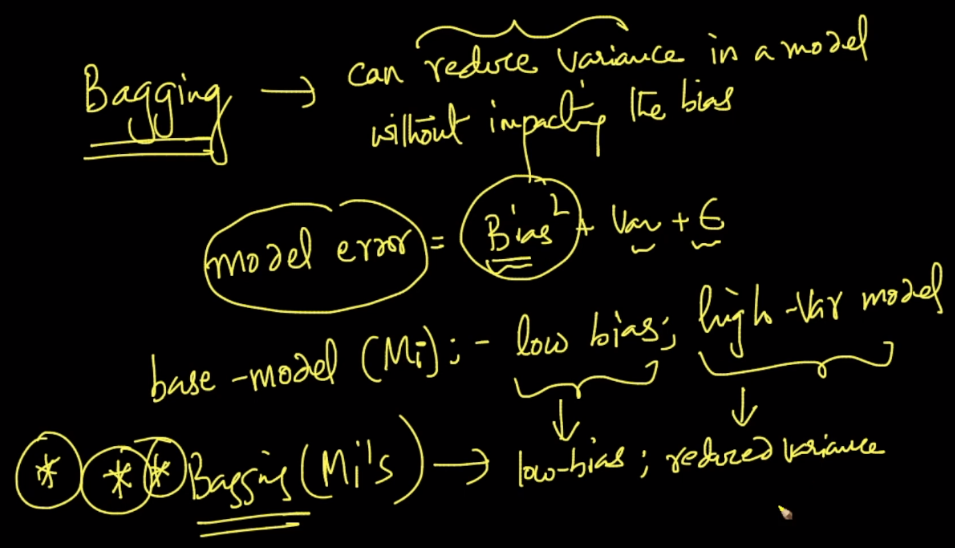 Bagging → can reduce variance in a model
without impacting the bias
model error = Bias² + Var + ε
base-model (Mi) :- low bias; high-var model
* * * Bagging (Mi's) → low-bias ; reduced variance